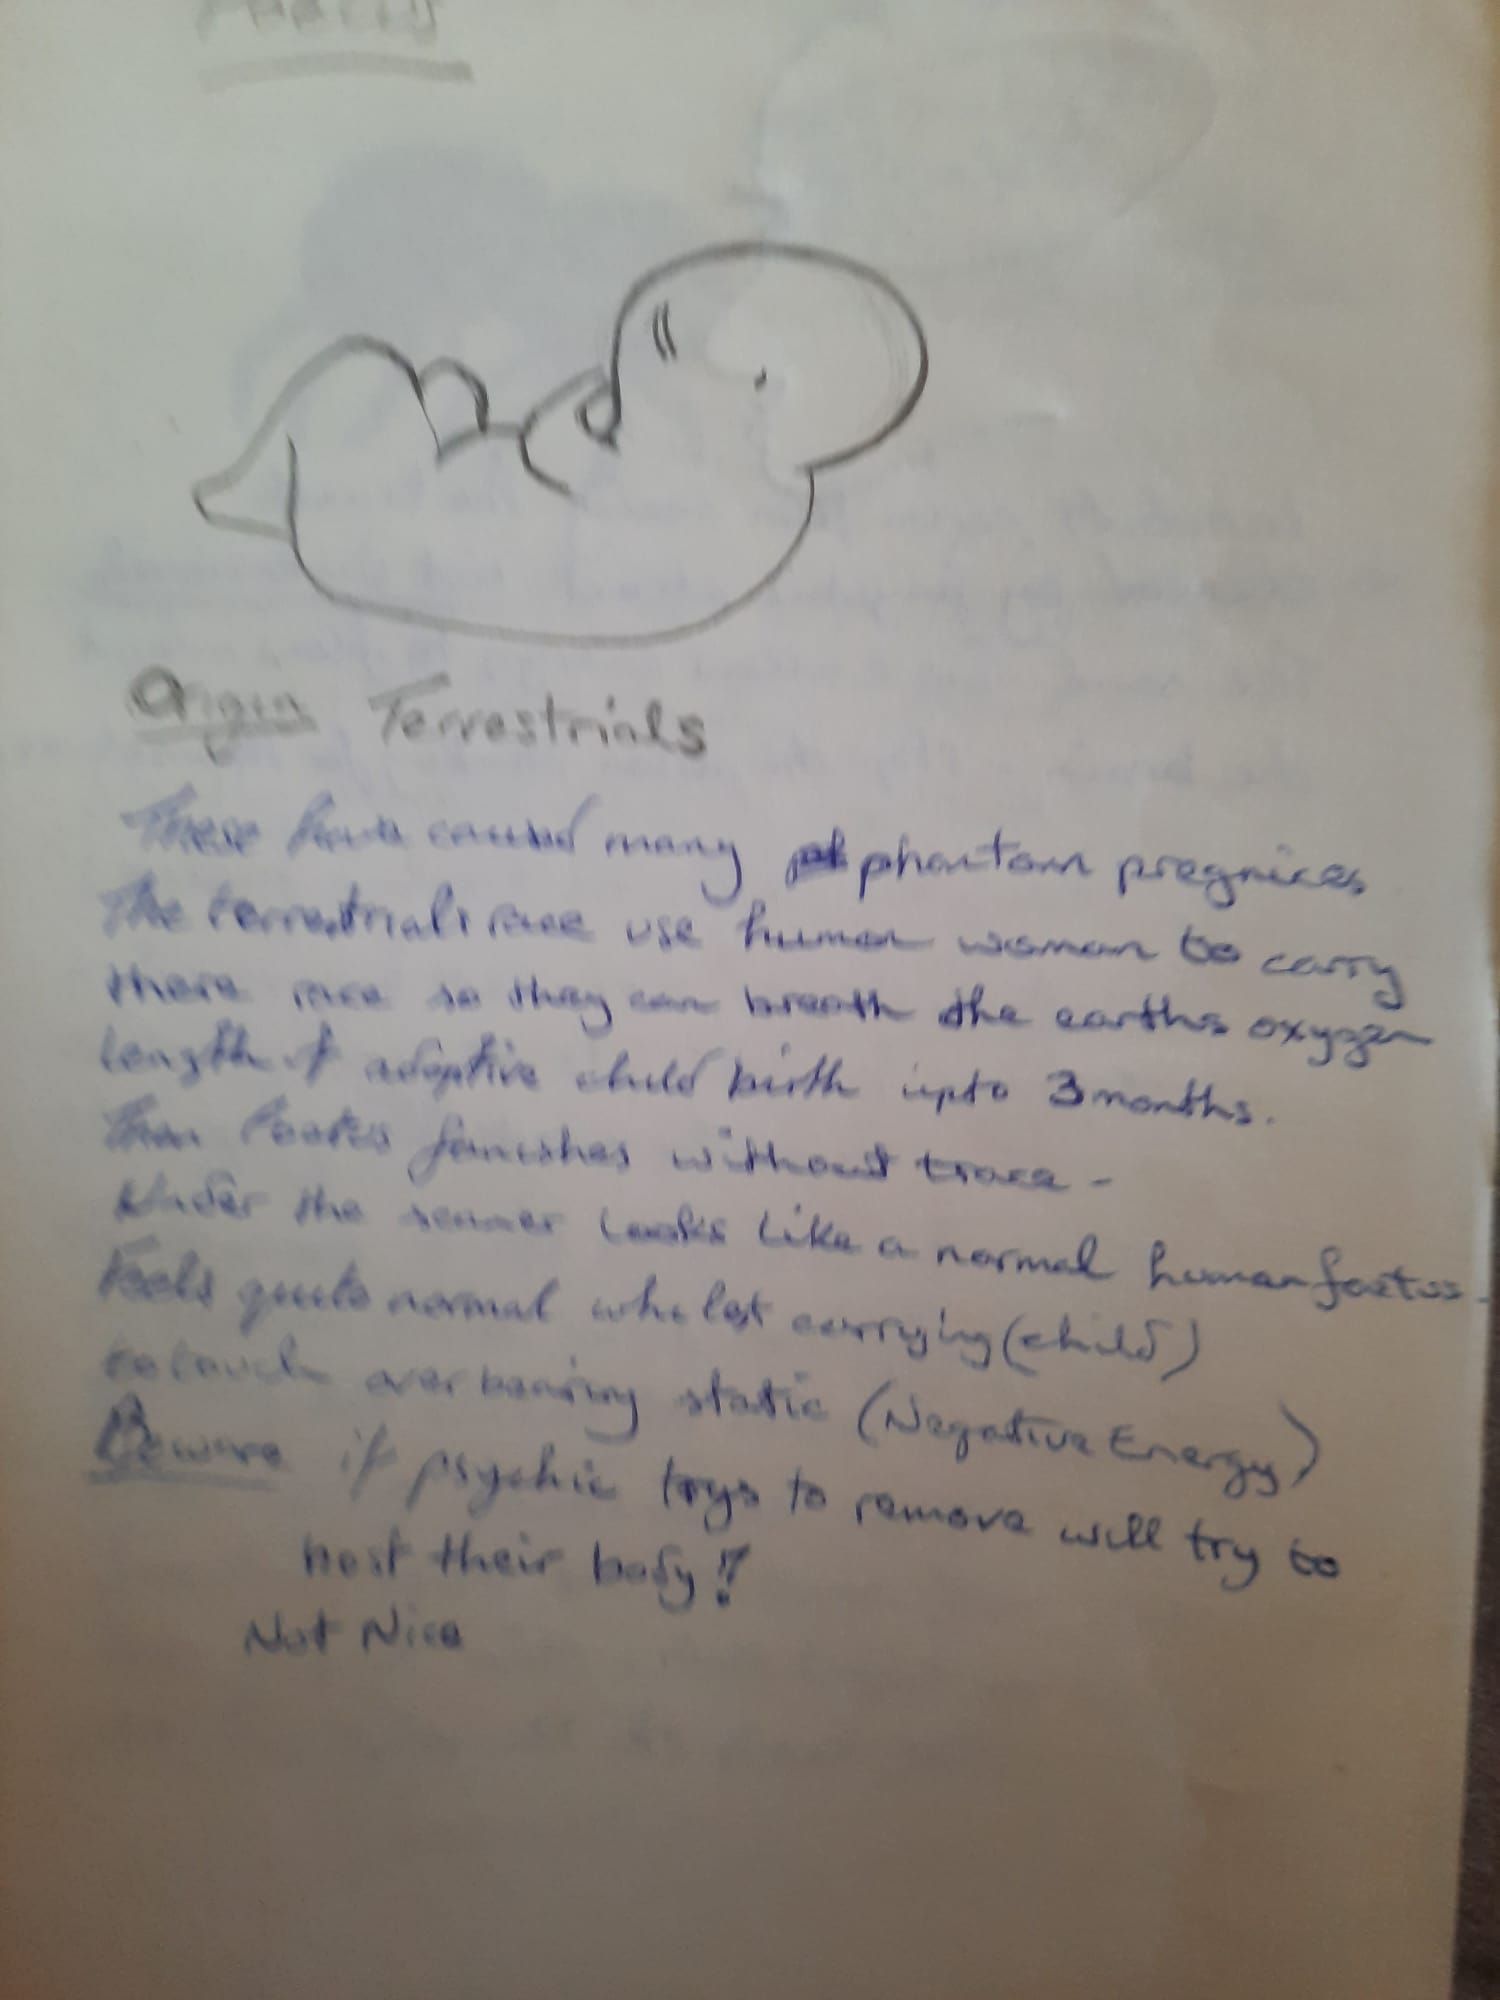 Origin Terrestrials
These have caused many phantom pregnices
The terrestrials race use human woman to carry
there race so they can breath the earths oxygen
length of adoptive child birth upto 3 months.
Then foetus fanishes without trace -
Under the scanner looks like a normal human foetus.
Feels quite normal whilst carrying (child)
to touch over bearing static (Negative Energy)
Beware if psychic trys to remove will try to
host their body!!
Not Nice